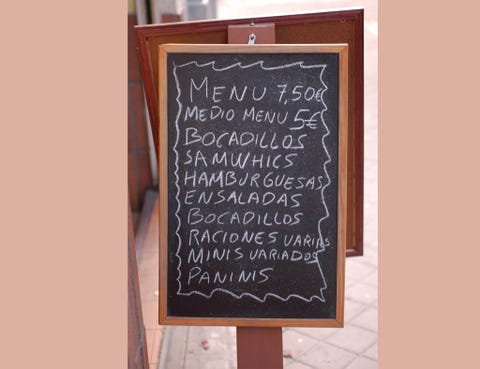 MENU 7,50€
MEDIO MENU 5€
BOCADILLOS
SAMWHICS
HAMBURGUESAS
ENSALADAS
BOCADILLOS
RACIONES VARIAS
MINIS VARIADOS
PANINIS